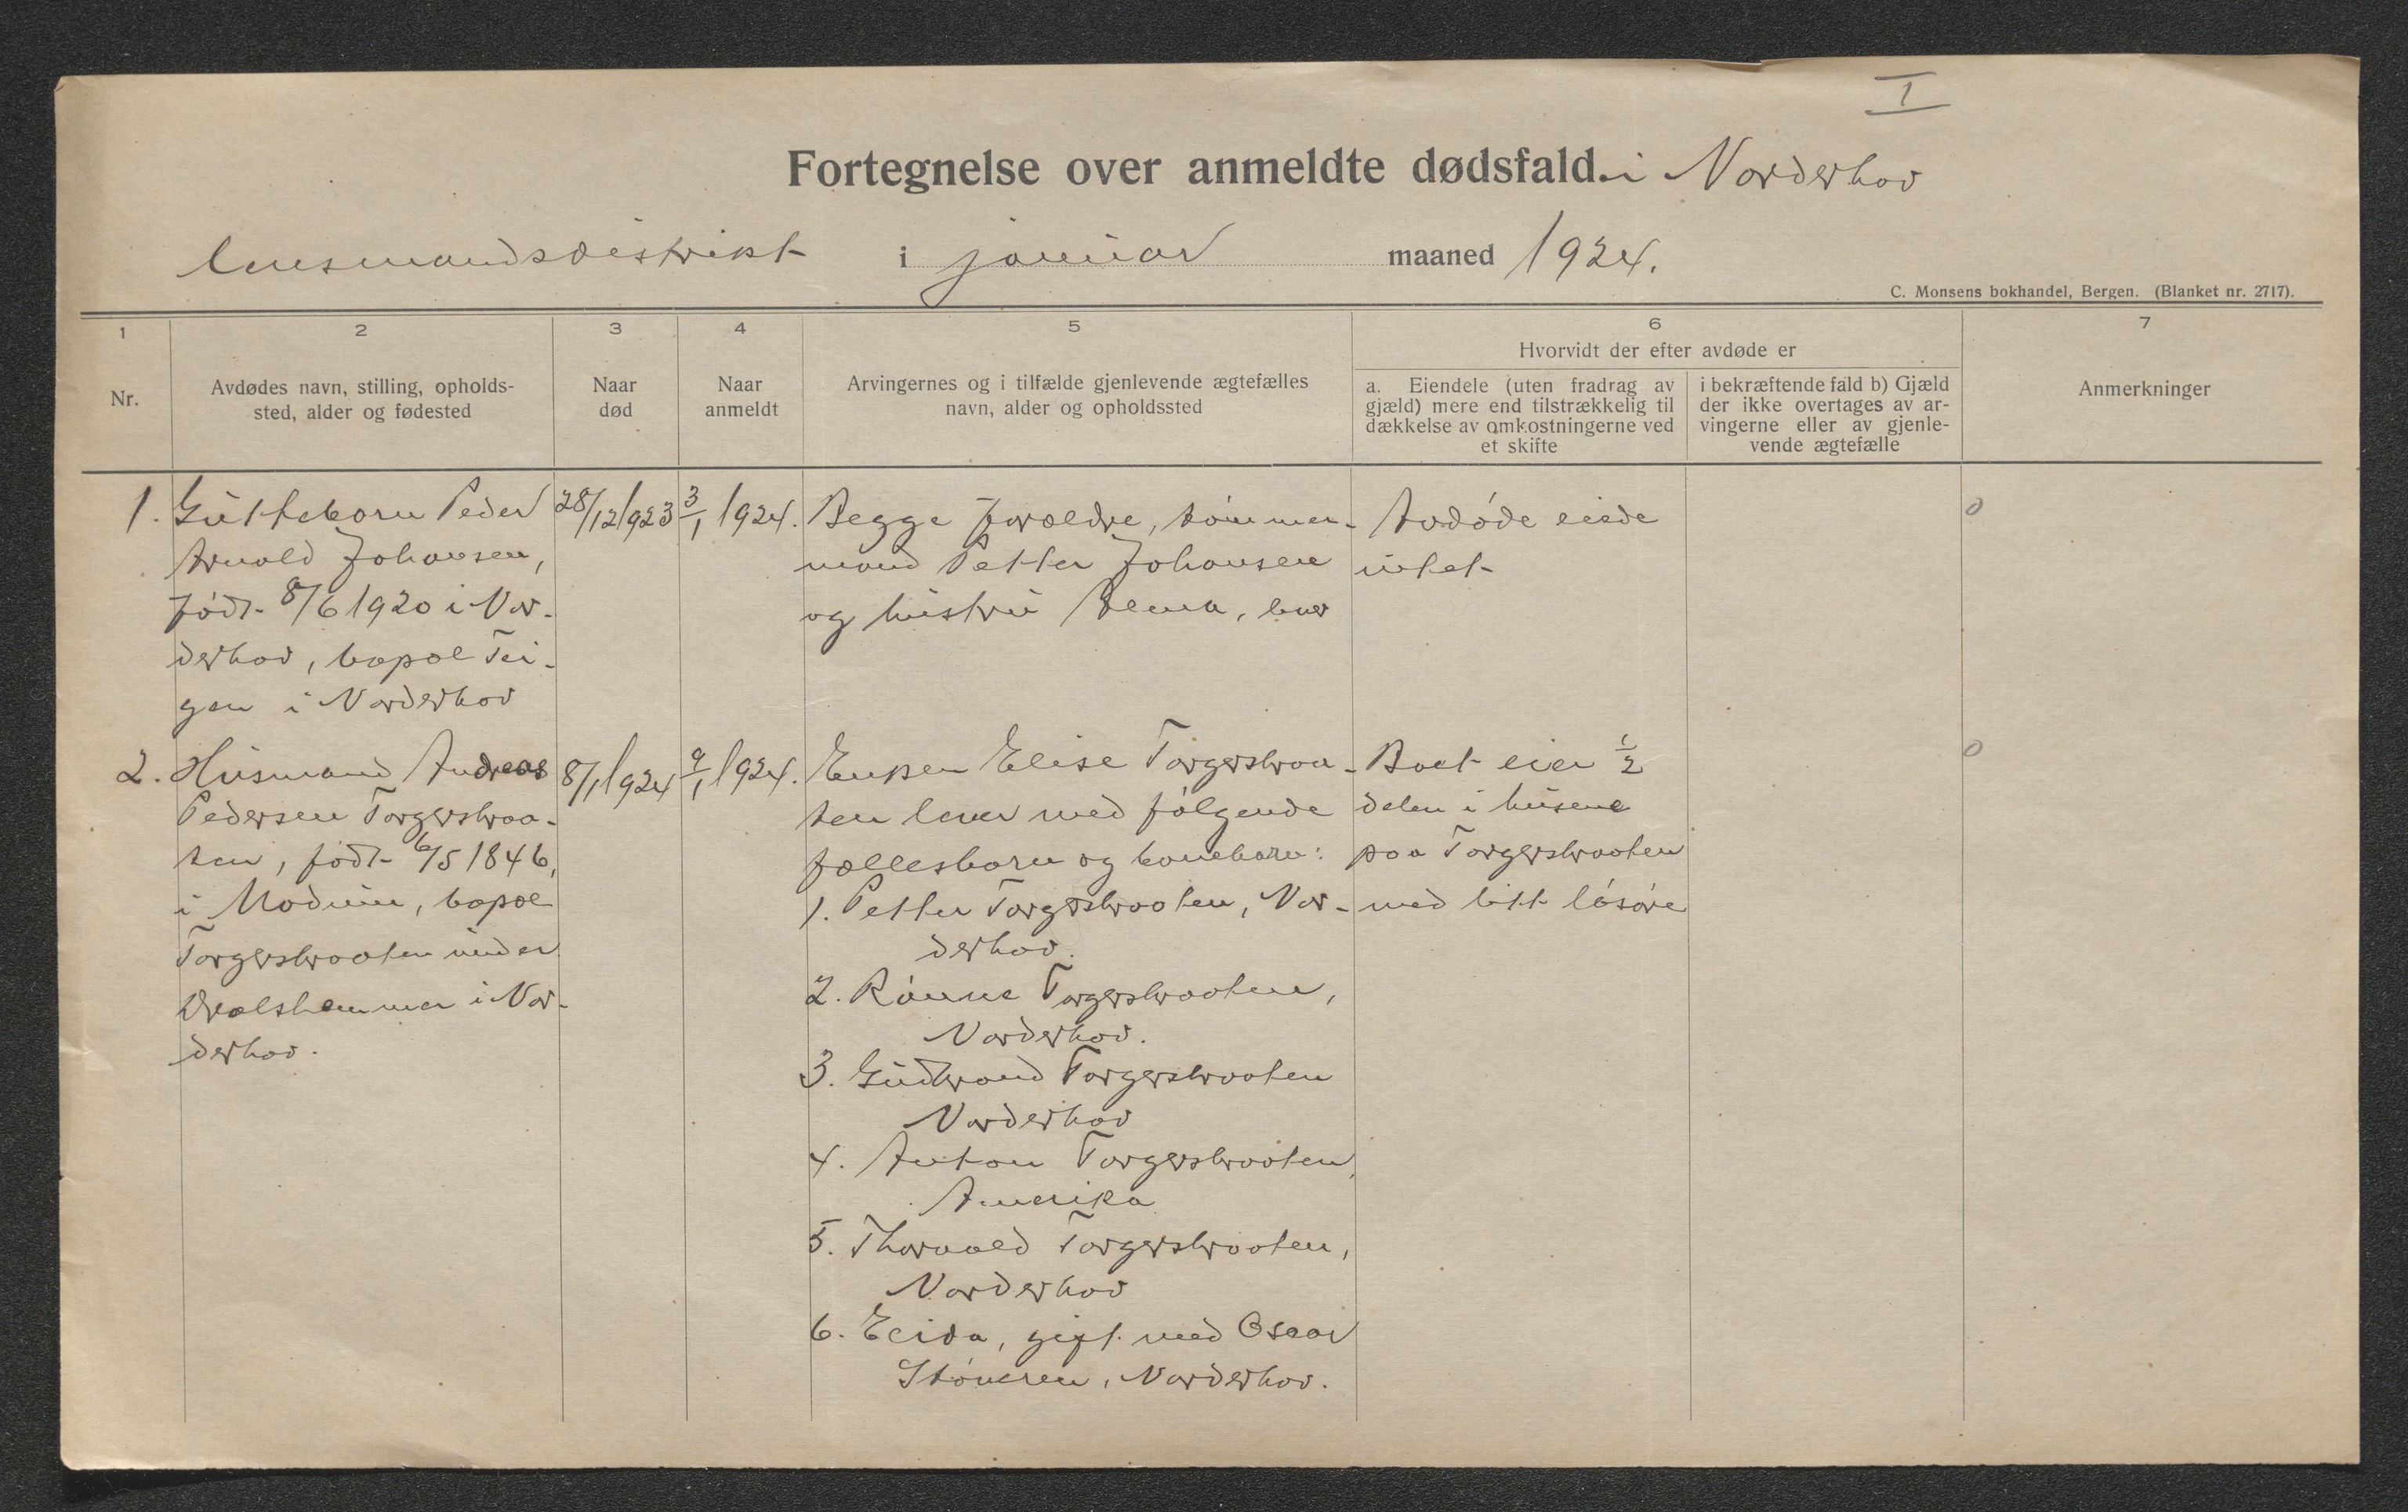 I
Fortegnelse over anmeldte dødsfald. i Norderhov
lensmandsdistrikt i januar maaned 1924.
C. Monsens bokhandel, Bergen. (Blanket nr. 2717).
1 2 3 4 5 6 7
Nr.
Avdødes navn, stilling, opholds-
sted, alder og fødested
Naar
død
Naar
anmeldt
Arvingernes og i tilfælde gjenlevende ægtefælles
navn, alder og opholdssted
Hvorvidt der efter avdøde er
a. Eiendele (uten fradrag av
gjæld) mere end tilstrækkelig til
dækkelse av omkostningerne ved
et skifte
i bekræftende fald b) Gjæld
der ikke overtages av ar-
vingerne eller av gjenle-
vende ægtefælle
Anmerkninger
1. Guttebarn Peder
Arnold Johansen,
født 8/6 1920 i Nor-
derhov, bopæl Tei-
gen i Norderhov
28/12 1923
3/1 1924.
Begge forældre, tømmer-
mand Petter Johansen
og hustru, lever
Avdøde eiede
intet
0
2. Husmand Andreas
Pedersen Torgersbraa-
ten, født 6/5 1846,
i Modum, bopæl
Torgersbraaten under
i Nor-
derhov.
8/1 1924
9/1 1924.
Enken Elise Torgersbraa-
ten lever med følgende
fællesbarn og bonebarn:
1. Petter Torgersbraaten, Nor-
derhov.
2. Torgersbraaten,
Norderhov.
3. Gudbrand Torgersbraaten
Norderhov
4. Anton Torgersbraaten,
Amerika
5. Thorvald Torgersbraaten,
Norderhov
6. gift med Oscar
Støveren, Norderhov.
Boet eier 1/2
delen i husene
paa Torgersbraaten
med litt løsøre
0